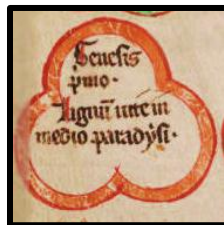 Genesis
p̄mo·
Lignū uite in
medio paradẏsi·